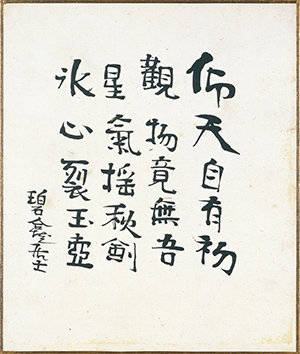 仰天自有初
觀物竟無吾
星氣搖秋劍
氷心裂玉壺
碧居士